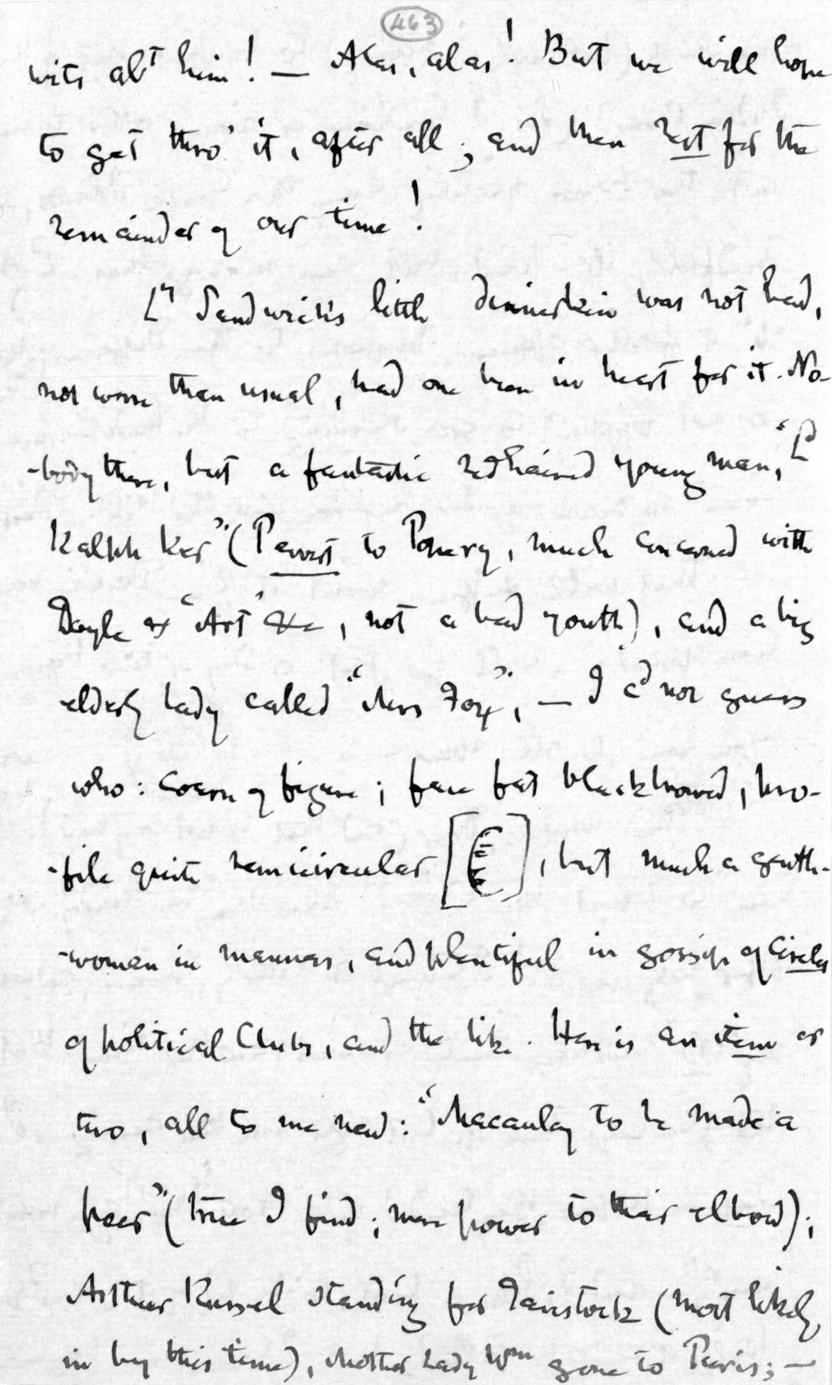 463
wits abt him! — Alas, alas! But we will hope
to get thro' it, after all; and then rest for the
remainder of our time!
Ld Sandwich's little dinnerkin was not bad,
not worse than usual, had one been in heart for it. No-
-body there, but a fantastic redhaired young man, "Ld
Ralph Ker" (Pervert to Popery, much concerned with
Doyle & "Art" &c, not a bad youth), and a big
elderly Lady called "Mrs Fox", — I cd not guess
who: coarse of figure; face fat blackbrowed, pro-
-file quite semicircular [ ], but much a gentle-
-woman in manner, and plentiful in gossip of Circles
of political Clubs, and the like. Here is an item or
two, all to me new: "Macaulay to be made a
peer" (true I find; more power to their elbow);
Arthur Russel standing for Tavistock (most likely
in by this time), Mother Lady Wm gone to Paris; —